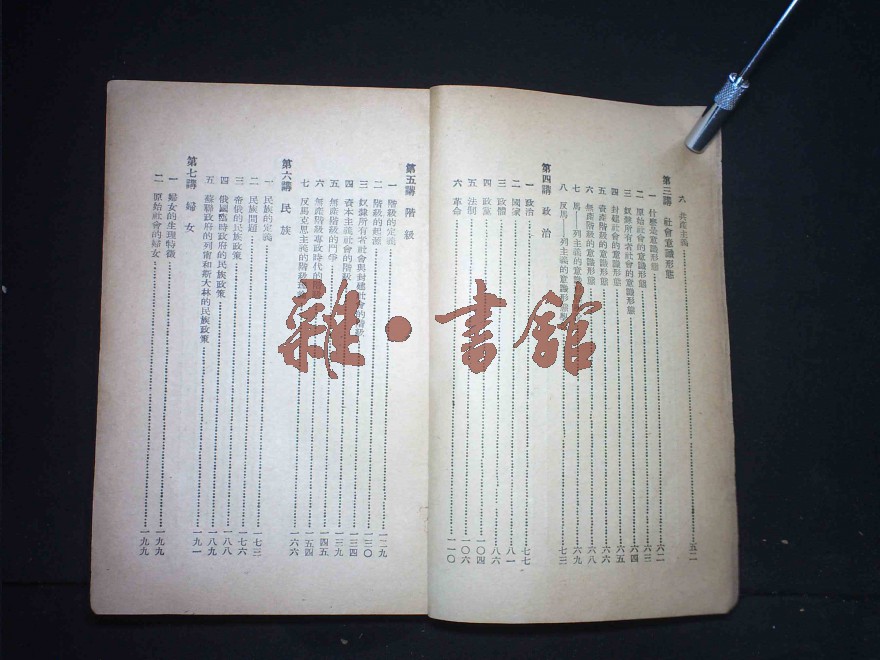 六 共產主義……五二
第三講 社會意識形態
一 什麼是意識形態……六二
二 原始社會的意識形態……六三
三 奴隸所有者社會的意識形態……六四
四 封建社會的意識形態……六五
五 資產階級的意識形態……六六
六 無產階級的意識形態……六八
七 馬——列主義的意識形態……六九
八 反馬——列主義的意識形態……七三
第四講 政治
一 政治……七七
二 國家……八一
三 政體……八六
四 政黨……一〇四
五 法制……一〇六
六 革命……一一〇
第五講 階級
一 階級的定義……一二九
二 階級的起源……一三〇
三 奴隸所有者社會與封建社會的階級……一三四
四 資本主義社會的階級……一三九
五 無產階級的鬥爭……一四五
六 無產階級專政時代的……一五四
七 反馬克思主義的階級……一六六
第六講 民族
一 民族的定義……一七三
二 民族問題……一七六
三 帝俄的民族政策……一八八
四 俄國臨時政府的民族政策……一八九
五 蘇聯政府的列甯和斯大林的民族政策……一九一
第七講 婦女
一 婦女的生理特徵……一九九
二 原始社會的婦女……一九九
雜·書館